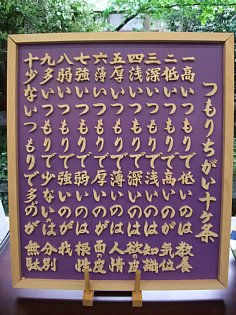 つもりちがい十ヶ条
一高いつもりで低いのは教養
二低いつもりで高いのは気位
三深いつもりで浅いのは知識
四浅いつもりで深いのは欲の皮
五厚いつもりで薄いのは人情
六薄いつもりで厚いのは面の皮
七強いつもりで弱いのは根性
八弱いつもりで強いのは我
九多いつもりで少ないのは分別
十少ないつもりで多のが無駄